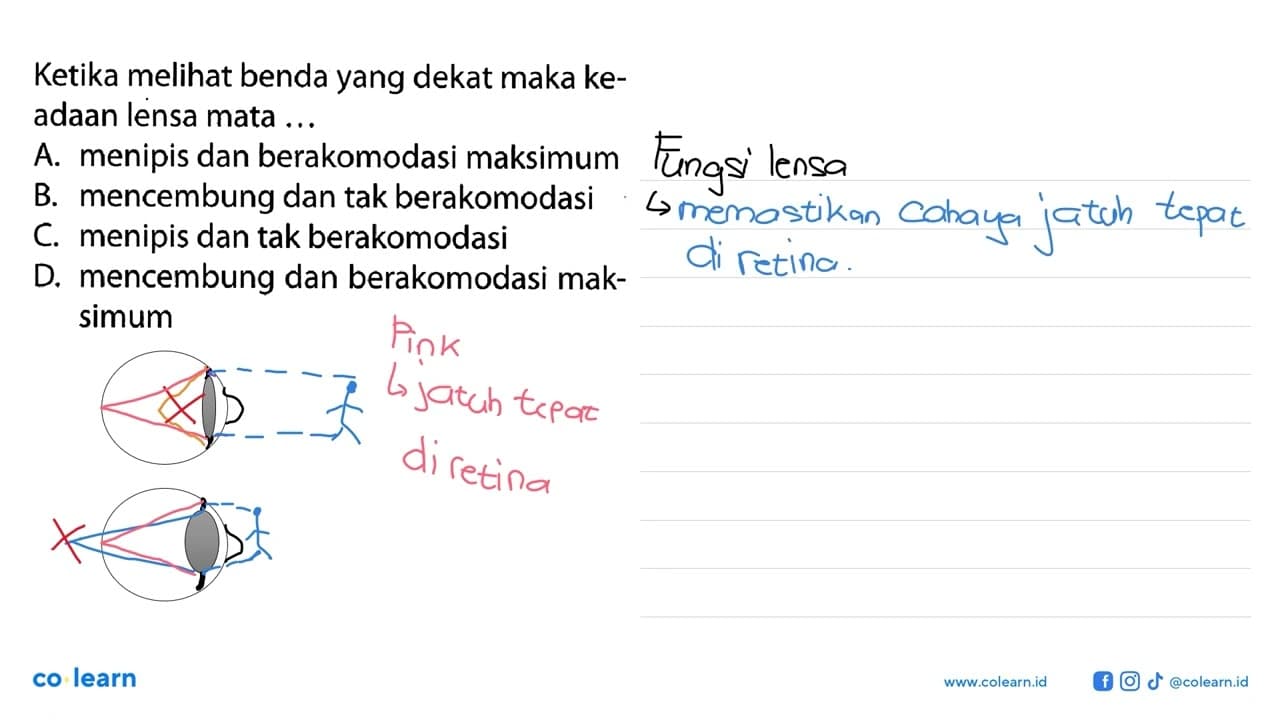 Ketika melihat benda yang dekat maka ke-
adaan lensa mata ...
A. menipis dan berakomodasi maksimum
B. mencembung dan tak berakomodasi
C. menipis dan tak berakomodasi
D. mencembung dan berakomodasi mak-
simum
Pink
↳ jatuh tepat
di retina
Fungsi lensa
↳ memastikan cahaya jatuh tepat
di retina.
co learn
www.colearn.id
@colearn.id